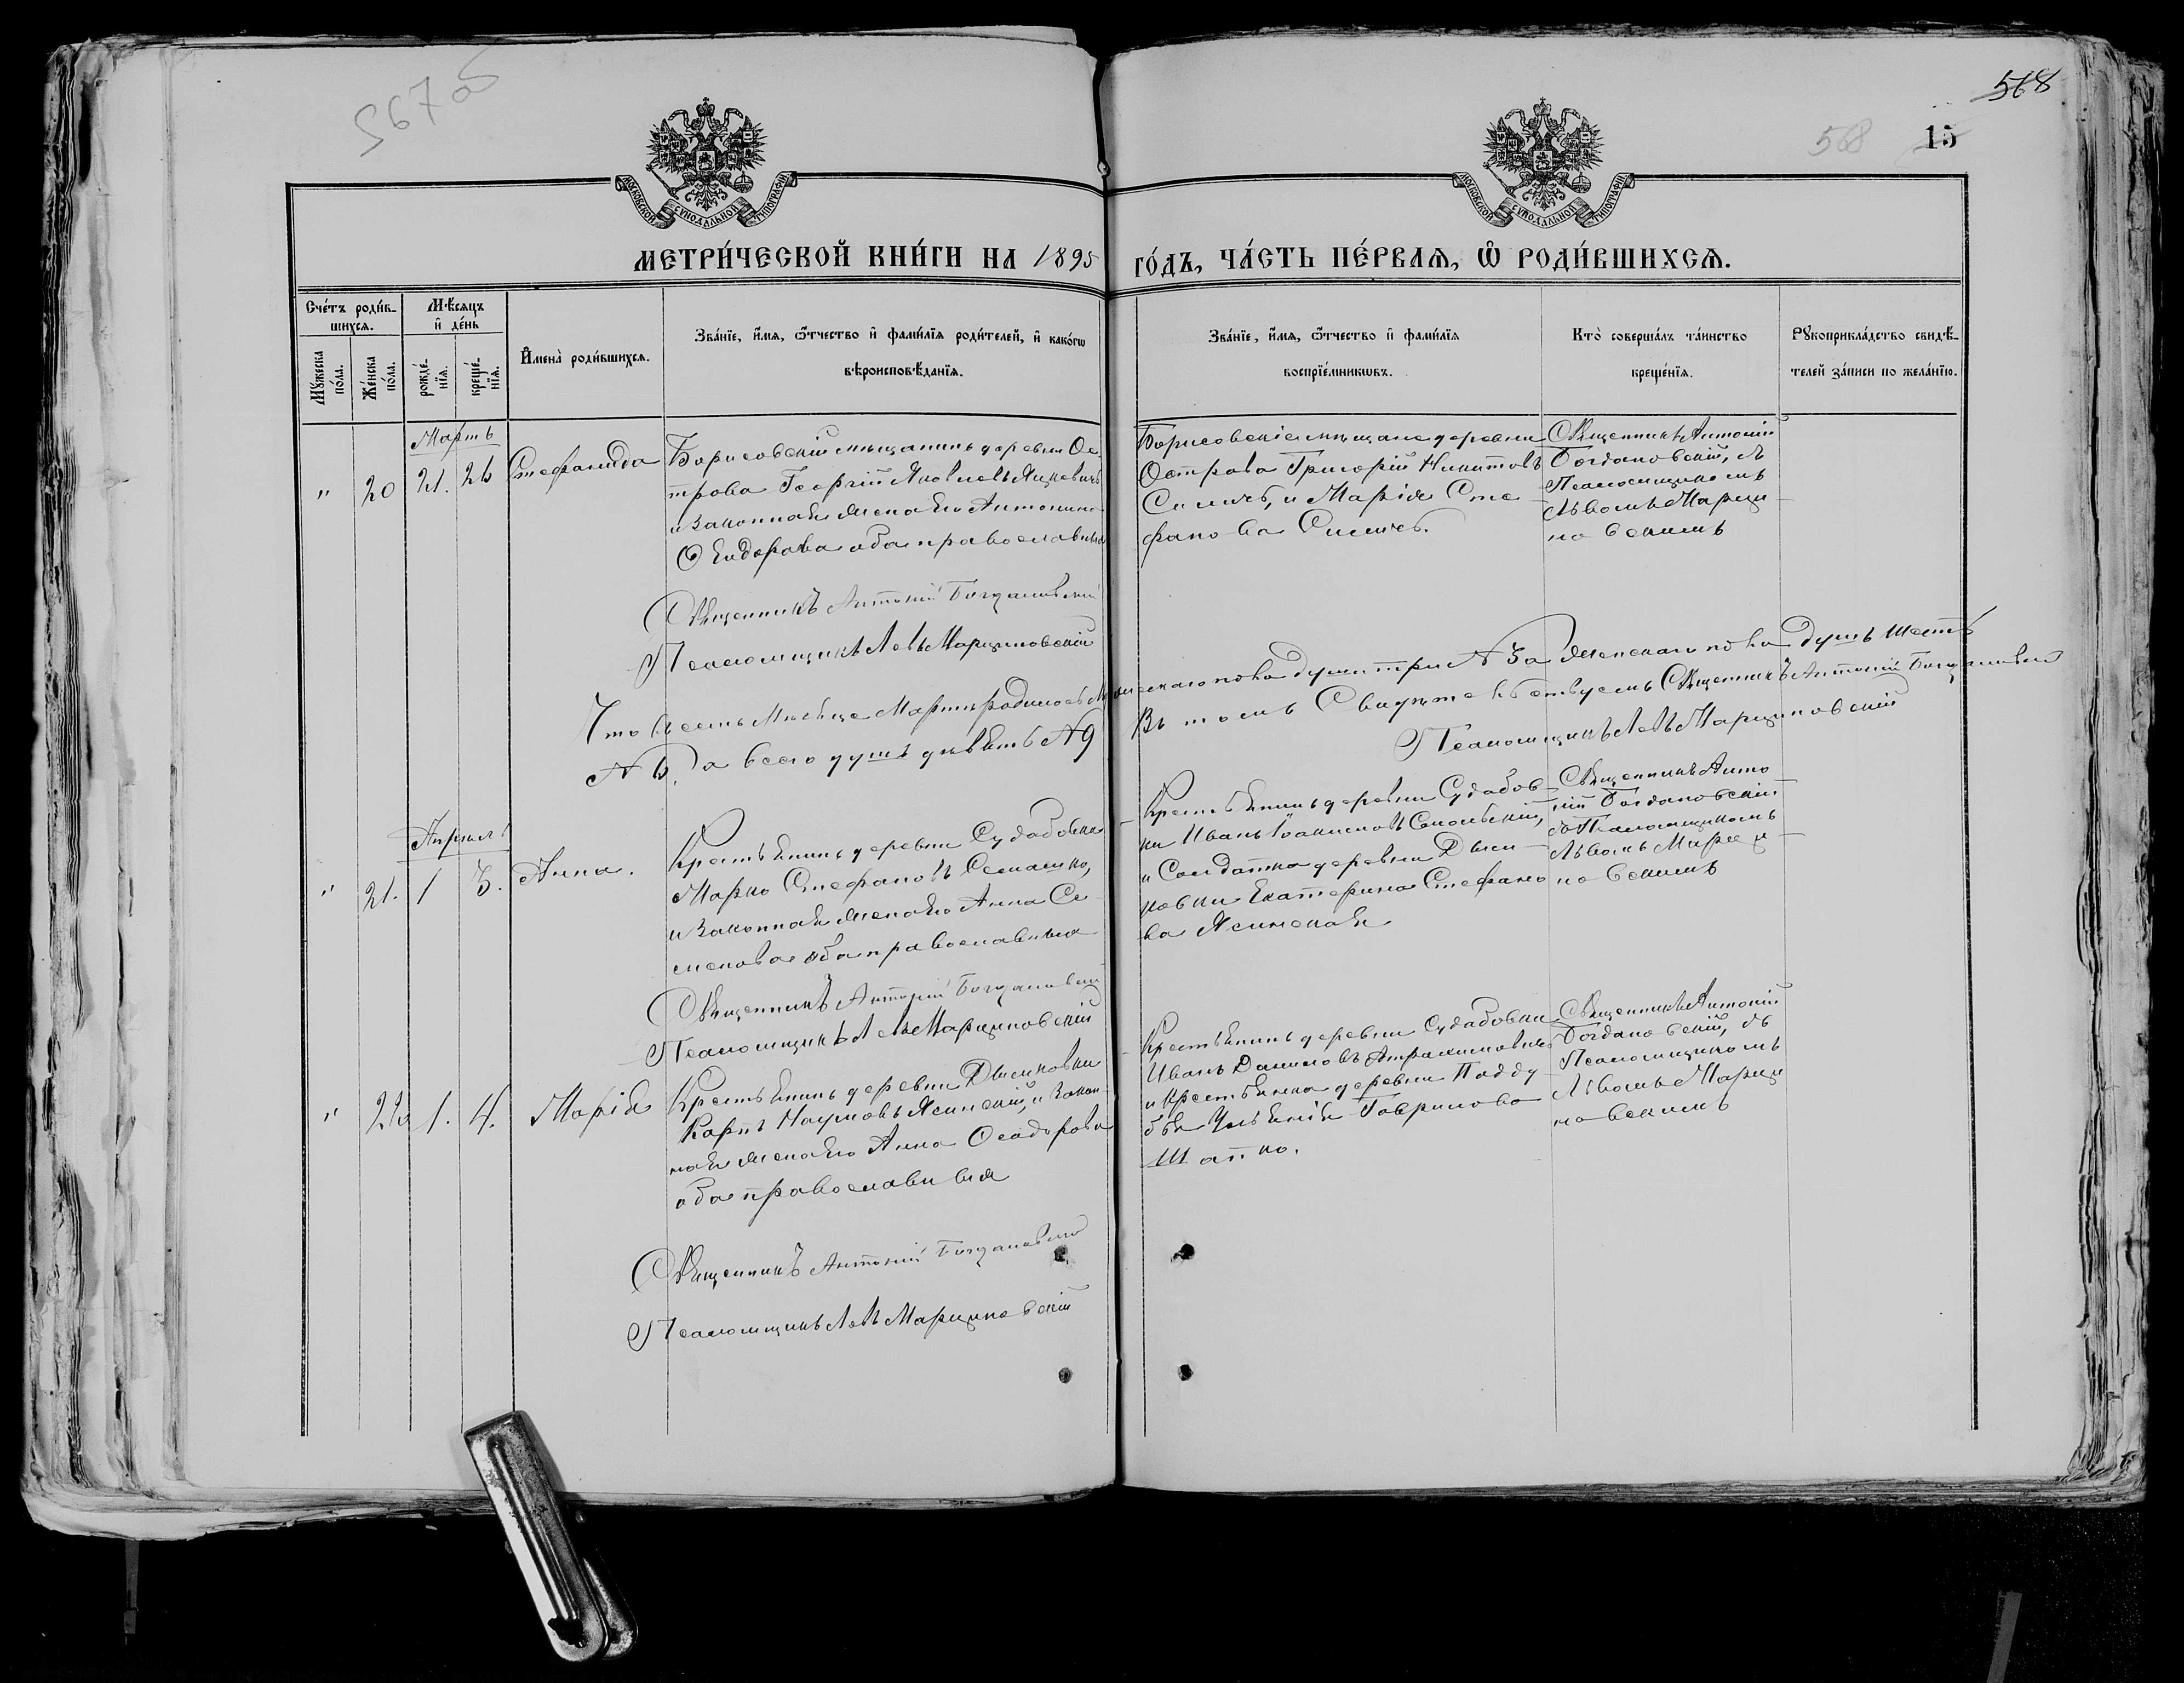 567об
568
568
15
МОСКОВСКОЙ СѴНОДАЛЬНОЙ ТИПОГРАФІИ
МОСКОВСКОЙ СѴНОДАЛЬНОЙ ТИПОГРАФІИ
МЕТРИ́ЧЕСКОЙ КНИ́ГИ НА 1895 ГО́ДЪ, ЧА́СТЬ ПЕ́РВАѦ, Ѡ҆ РОДИ́ВШИХСѦ.
Сче́тъ роди́в-
шихсѧ.
Мꙋ́жеска
по́ла.
Же́нска
по́ла.
Мѣ́сѧцъ
и҆ де́нь
рожде́-
нїѧ.
креще́-
нїѧ.
И҆мена̀ роди́вшихсѧ.
Зва́нїе, и҆́мѧ, ѻ҆́тчество и҆ фами́лїѧ роди́телей, и҆ како́гѡ
вѣроисповѣ́данїѧ.
Зва́нїе, и҆́мѧ, ѻ҆́тчество и҆ фами́лїѧ
воспрїе́мникѡвъ.
Кто̀ соверша́лъ та́инство
креще́нїѧ.
Рꙋкоприкла́дство свидѣ́-
телей за́писи по жела́нїю.
Мартъ
" 20 21. 26 Стефанида
Борисовскій мѣщанинъ деревни Ос
трова Георгій Яковлевъ Яцкевичъ
и законная жена его Антонина
Ѳеодорова оба православные
Борисовскіе мѣщане деревни
Острова Григорій Никитовъ
Силичъ, и Марія Сте
фанова Силичъ.
Священникъ Антоній
Богдановскій, съ
Псаломщикомъ
Львомъ Марци
новскимъ
Священникъ Антоній Богдановскій
Псаломщикъ Левъ Марциновскій
Что въ семъ Мѣсяце Мартѣ родилось Мужескаго пола души три №3 а Женскаго пола душъ шесть
№6, а всего душъ девять №9
Въ томъ Свидѣтельствуемъ Священникъ Антоній Богдановскій
Псаломщикъ Левъ Марциновскій
Апрѣль
" 21. 1 3. Анна.
Крестьянинъ деревни Судабовки
Марко Стефановъ Семашко,
и законная жена его Анна Се
менова оба православные
Крестьянинъ деревни Судабов
ки Иванъ Іоакимовъ
и Солдатка деревни Дим
ковки Екатерина Стефано
ва Ясинская
Священникъ Анто
ній Богдановскій
съ Псаломщикомъ
Львомъ Марци
новскимъ
Священникъ Антоній Богдановскій
Псаломщикъ Левъ Марциновскій
" 22 1. 4. Марія
Крестьянинъ деревни Димковки
Карпъ Наумовъ Ясинскій, и закон
ная жена его Анна Ѳеодорова
оба православныя
Крестьянинъ деревни Судабовки
Иванъ Даниловъ Атрахимовичъ
и крестьянка деревни Подду
бья Ульянія Гаврилова
Шапко.
Священникъ Антоній
Богдановскій, съ
Псаломщикомъ
Львомъ Марци
новскимъ
Священникъ Антоній Богдановскій
Псаломщикъ Левъ Марциновскій